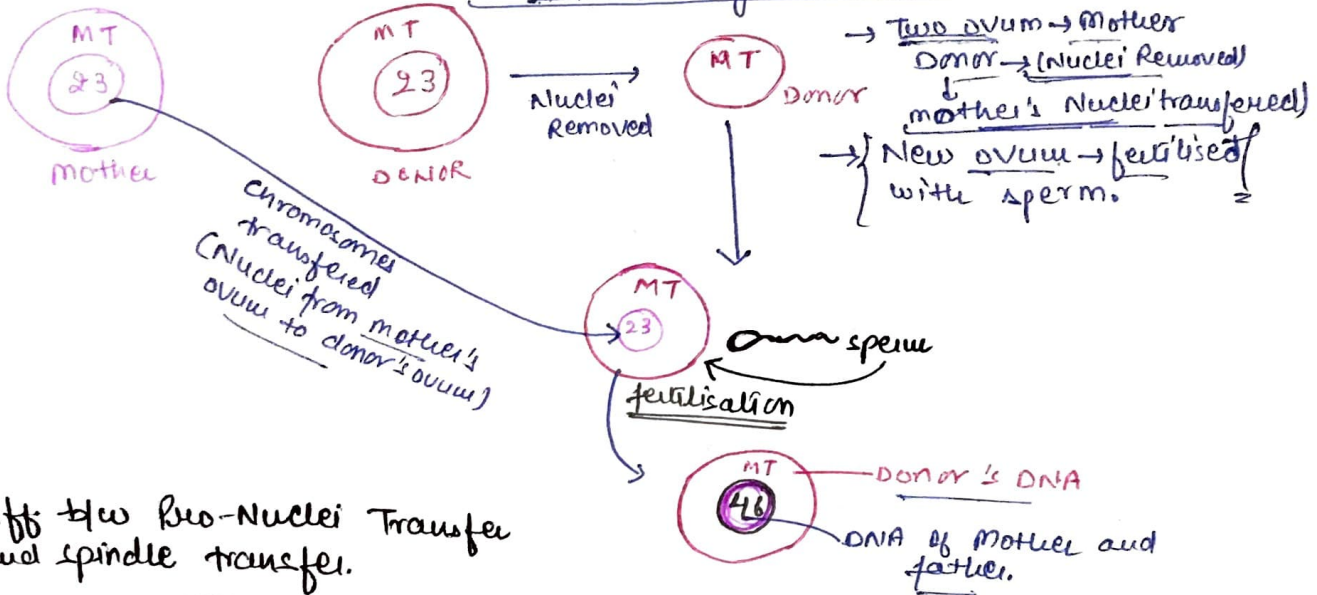 MT
23
Mother
MT
23
DONOR
Nuclei
Removed
MT
Donor
→ Two ovum → Mother
Donor → (Nuclei Removed)
↓
mother's Nuclei transfered)
→ { New ovum → fertilised }
with sperm.
Chromosomes
transfered
(Nuclei from mother's
ovum to donor's ovum)
MT
23
sperm
fertilisation
MT
46
Donor's DNA
DNA of Mother and
father.
b/w Pro-Nuclei Transfer
spindle transfer.